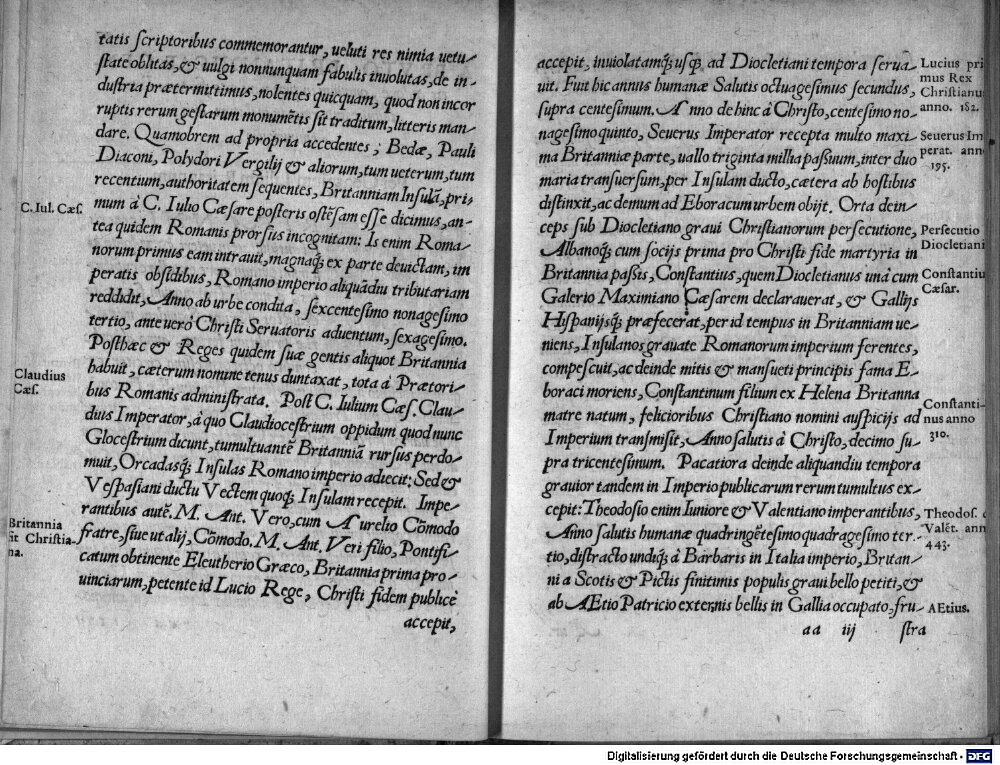 tatis scriptoribus commemorantur, ueluti res nimia uetu-
state oblitas, & uulgi nonnunquam fabulis inuolutas, de in-
dustria prætermittimus, nolentes quicquam, quod non incor
ruptis rerum gestarum monumẽtis sit traditum, litteris man-
dare. Quamobrem ad propria accedentes, Bedæ, Pauli
Diaconi, Polydori Vergilij & aliorum, tum ueterum, tum
recentium, authoritatem sequentes, Britanniam Insulã, pri-
C. Iul. Cæs.
mum à C. Iulio Cæsare posteris ostẽsam esse dicimus, an-
tea quidem Romanis prorsus incognitam: Is enim Roma-
norum primus eam intrauit, magnaq́; ex parte deuictam, im
peratis obsidibus, Romano imperio aliquãdiu tributariam
reddidit, Anno ab urbe condita, sexcentesimo nonagesimo
tertio, ante uerò Christi Seruatoris aduentum, sexagesimo.
Posthæc & Reges quidem suæ gentis aliquot Britannia
Claudius
Cæs.
habuit, cæterum nomine tenus duntaxat, tota à Prætori-
bus Romanis administrata. Post C. Iulium Cæs. Clau-
dius Imperator, à quo Claudiocestrium oppidum quod nunc
Glocestrium dicunt, tumultuantẽ Britanniã rursus perdo-
muit, Orcadasq́; Insulas Romano imperio adiecit: Sed &
Vespasiani ductu Vectem quoq́; Insulam recepit. Impe-
rantibus autẽ. M. Ant. Vero, cum Aurelio Cõmodo
Britannia
fit Christia-
na.
fratre, siue ut alij, Cõmodo. M. Ant. Veri filio, Pontifi-
catum obtinente Eleutherio Græco, Britannia prima pro-
uinciarum, petente id Lucio Rege, Christi fidem publicè
accepit,
accepit, inuiolatamq́; usq́; ad Diocletiani tempora serua-
uit. Fuit hic annus humanæ Salutis octuagesimus secundus,
supra centesimum. Anno dehinc à Christo, centesimo no-
nagesimo quinto, Seuerus Imperator recepta multo maxi-
ma Britanniæ parte, uallo triginta millia passuum, inter duo
maria transuersum, per Insulam ducto, cætera ab hostibus
distinxit, ac demum ad Eboracum urbem obijt. Orta dein-
ceps sub Diocletiano graui Christianorum persecutione,
Albanoq́; cum socijs prima pro Christi fide martyria in
Britannia passis, Constantius, quem Diocletianus unà cum
Galerio Maximiano Cæsarem declarauerat, & Gallijs
Hispanijsq́; præfecerat, per id tempus in Britanniam ue-
niens, Insulanos grauate Romanorum imperium ferentes,
compescuit, ac deinde mitis & mansueti principis fama E-
boraci moriens, Constantinum filium ex Helena Britanna
matre natum, felicioribus Christiano nomini auspicijs ad
Imperium transmisit, Anno salutis à Christo, decimo su-
pra tricentesimum. Pacatiora deinde aliquandiu tempora
grauior tandem in Imperio publicarum rerum tumultus ex-
cepit: Theodosio enim Iuniore & Valentiano imperantibus,
Anno salutis humanæ quadringẽtesimo quadragesimo ter-
tio, distracto undiq́; à Barbaris in Italia imperio, Britan-
ni a Scotis & Pictis finitimis populis graui bello petiti, &
ab AEtio Patricio externis bellis in Gallia occupato, fru-
aa iij stra
Lucius pri
mus Rex
Christianu
anno. 182.
Seuerus Im
perat. ann
195.
Persecutio
Diocletiani
Constantiu
Cæsar.
Constanti-
nus anno
310.
Theodos.
Valẽt. ann
443.
AEtius.
Digitalisierung gefördert durch die Deutsche Forschungsgemeinschaft - DFG